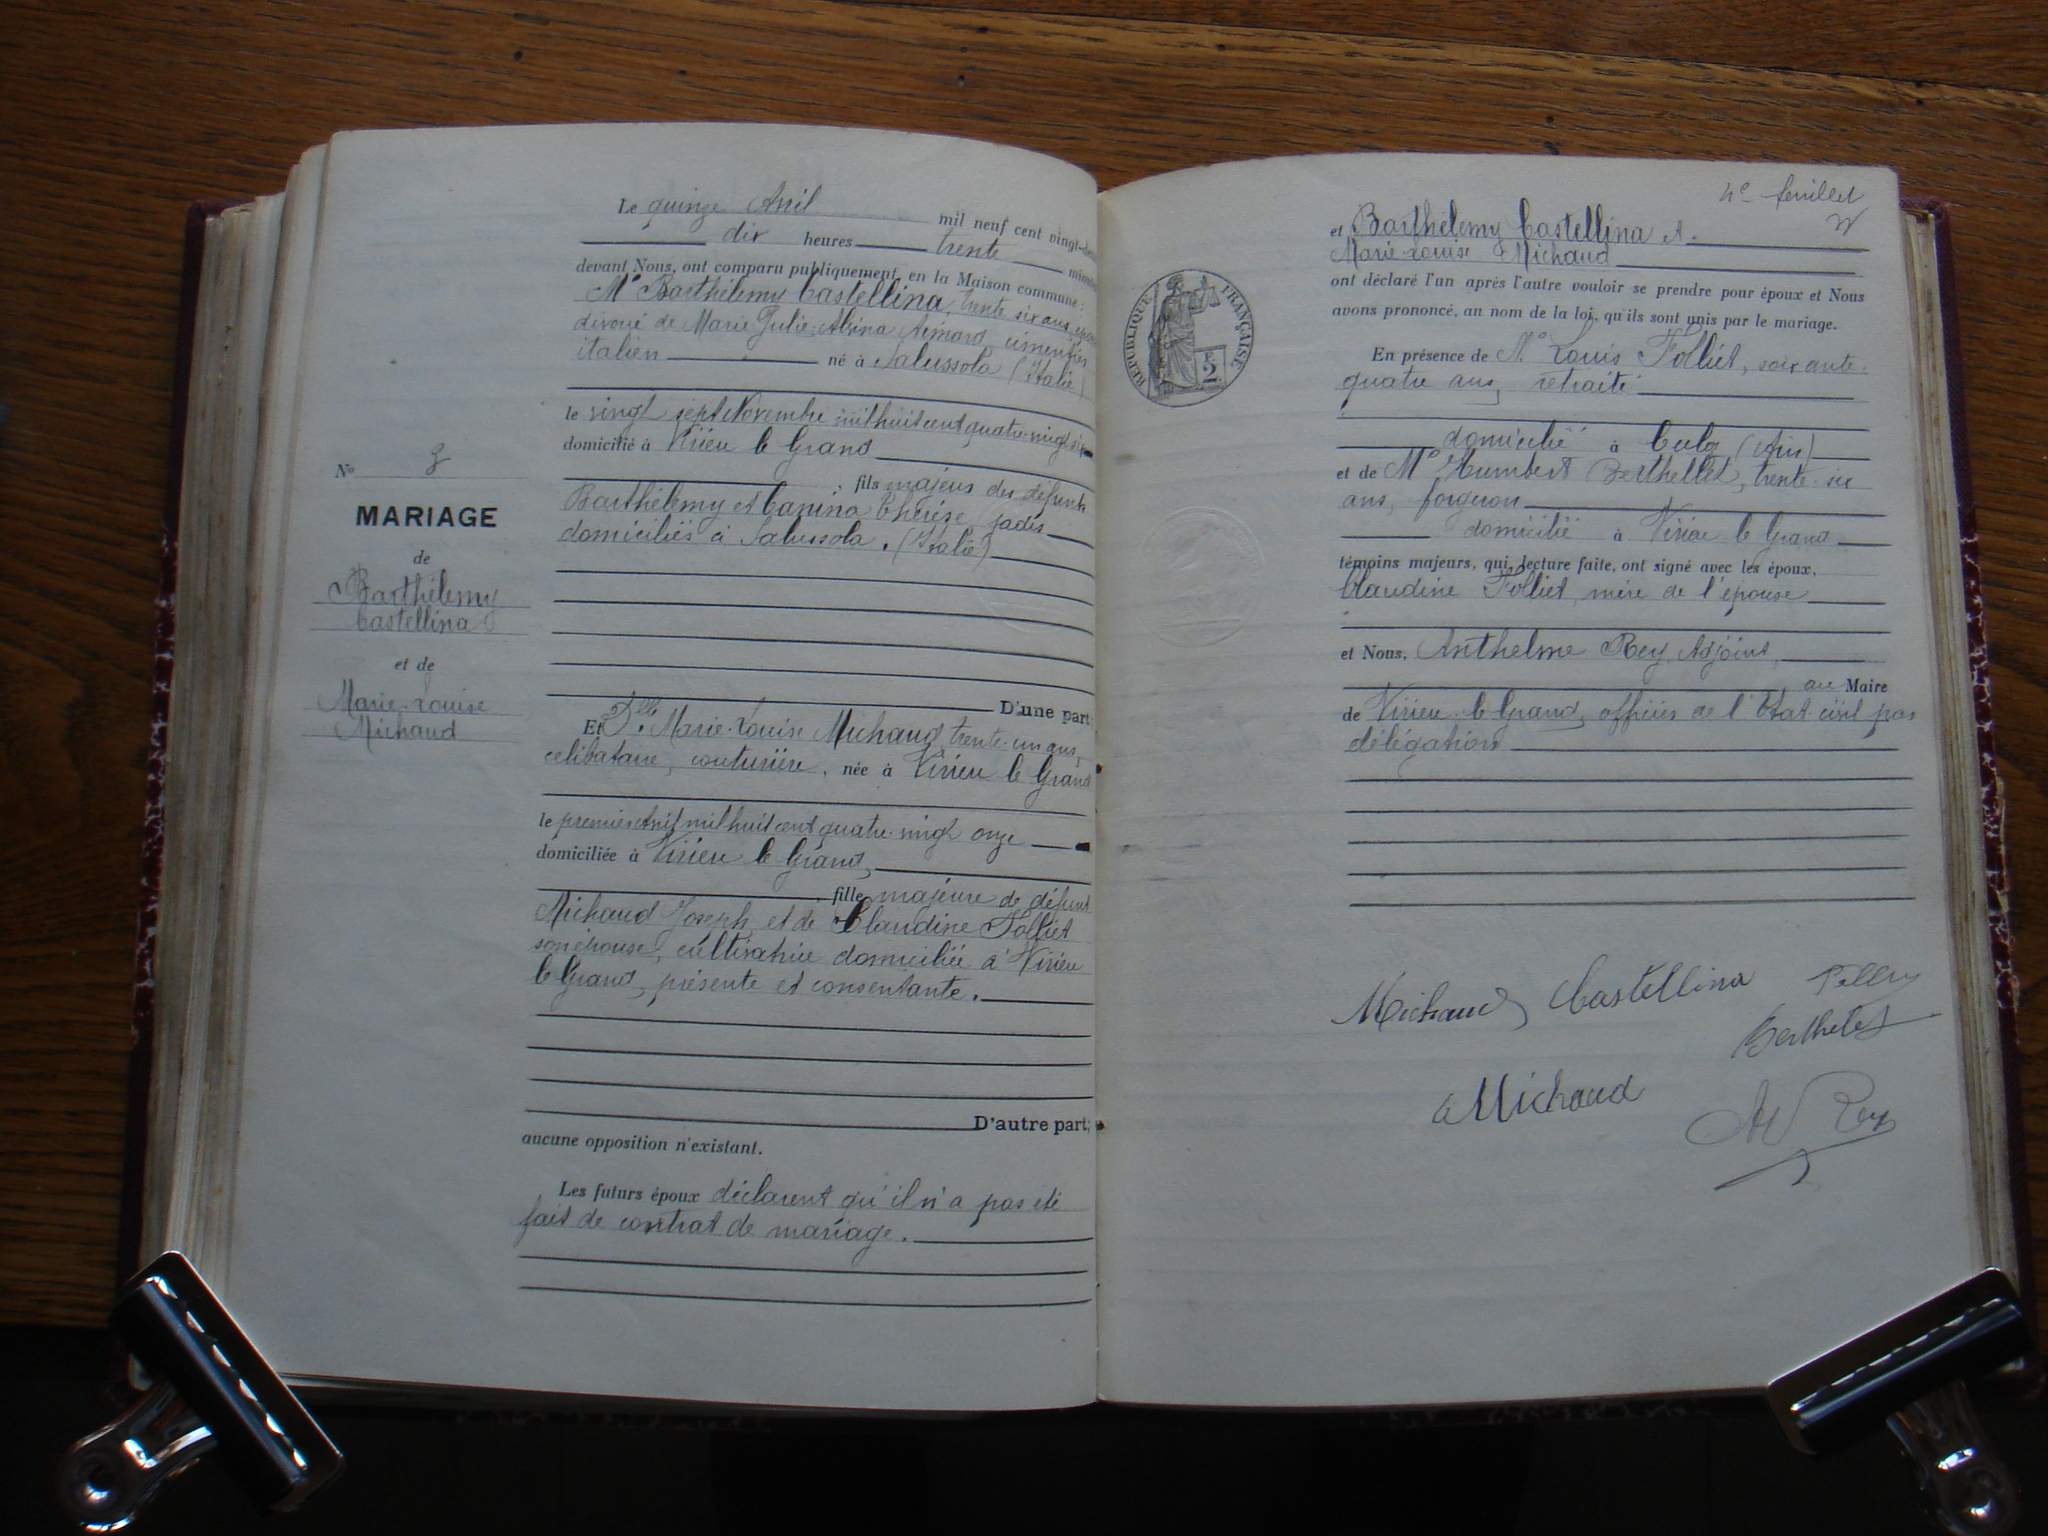 Le quinze Avril mil neuf cent vingt-deux
dix heures trente minutes
devant Nous, ont comparu publiquement, en la Maison commune:
Mr Barthélemy Castellina, trente six ans, époux
divorcé de Marie Julie Alsina Aimard, cimentier
italien né à Salussola (Italie)
le vingt sept Novembre mil huit cent quatre-vingt six
domicilié à Virieu le Grand
, fils majeur des défunts
Barthélemy et Canina Thérèse, jadis
domiciliés à Salussola. (Italie)
D'une part;
No
MARIAGE
de
Barthélemy
Castellina
et de
Marie-Louise
Michaud
Et Dlle Marie-Louise Michaud trente-un ans,
célibataire, couturière, née à Virieu le Grand
le premier Avril mil huit cent quatre-vingt onze
domiciliée à Virieu le Grand,
, fille majeure de défunt
Michaud Joseph et de Claudine Folliet
son épouse, cultivatrice domiciliée à Virieu
le Grand, présente et consentante.
D'autre part;
aucune opposition n'existant.
Les futurs époux déclarent qu'il n'a pas été
fait de contrat de mariage.
4e feuillet
et Barthélemy Castellina et
Marie-Louise Michaud
ont déclaré l'un après l'autre vouloir se prendre pour époux et Nous
avons prononcé, au nom de la loi, qu'ils sont unis par le mariage.
RÉPUBLIQUE FRANÇAISE
2F
En présence de Mr Louis Folliet, soixante-
quatre ans, retraité
domicilié à Culoz (Ain)
et de Mr Humbert Berthellet, trente-six
ans, forgeron
domicilié à Virieu le Grand
témoins majeurs, qui, lecture faite, ont signé avec les époux,
Claudine Folliet, mère de l'épouse
et Nous, Anthelme Rey, Adjoint,
au Maire
de Virieu-le-Grand, officier de l'Etat-civil par
délégation
Michaud Castellina
Berthelet
Michaud
Rey